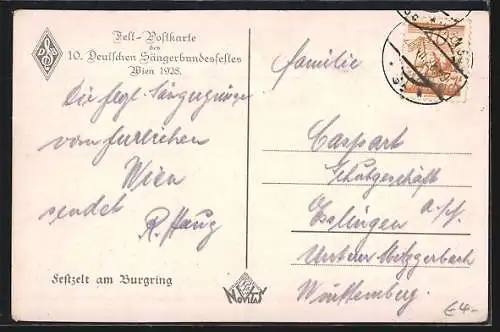 Fest-Postkarte
des
10. Deutschen Sängerbundesfestes
Wien 1928.
Die Sängergrüsse
vom
Wien
sendet
R. Haug
Festzelt am Burgring
NOVITAS
Familie
Caspart
Schuhgeschäft
Esslingen a. N.
Untere Metzgerbach
Württemberg.
€4-